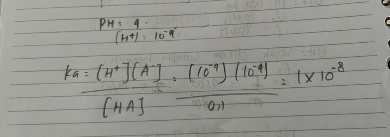 PH = 4
[H+] = 10^-4
Ka = [H+][A-] / [HA] = (10^-4)(10^-4) / 0,1 = 1 x 10^-8